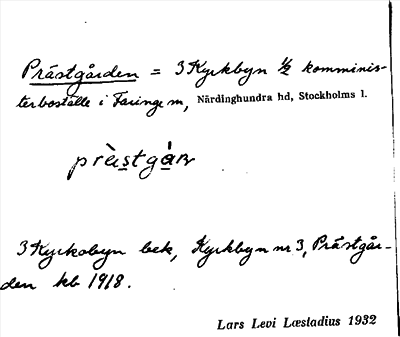 Prästgården = 3 Kyrkbyn ½ komminis-
terboställe i Faringe sn, Närdinghundra hd, Stockholms l.
3 Kyrkobyn bek, Kyrkbyn nr 3, Prästgår-
den kb 1918.
Lars Levi Læstadius 1932